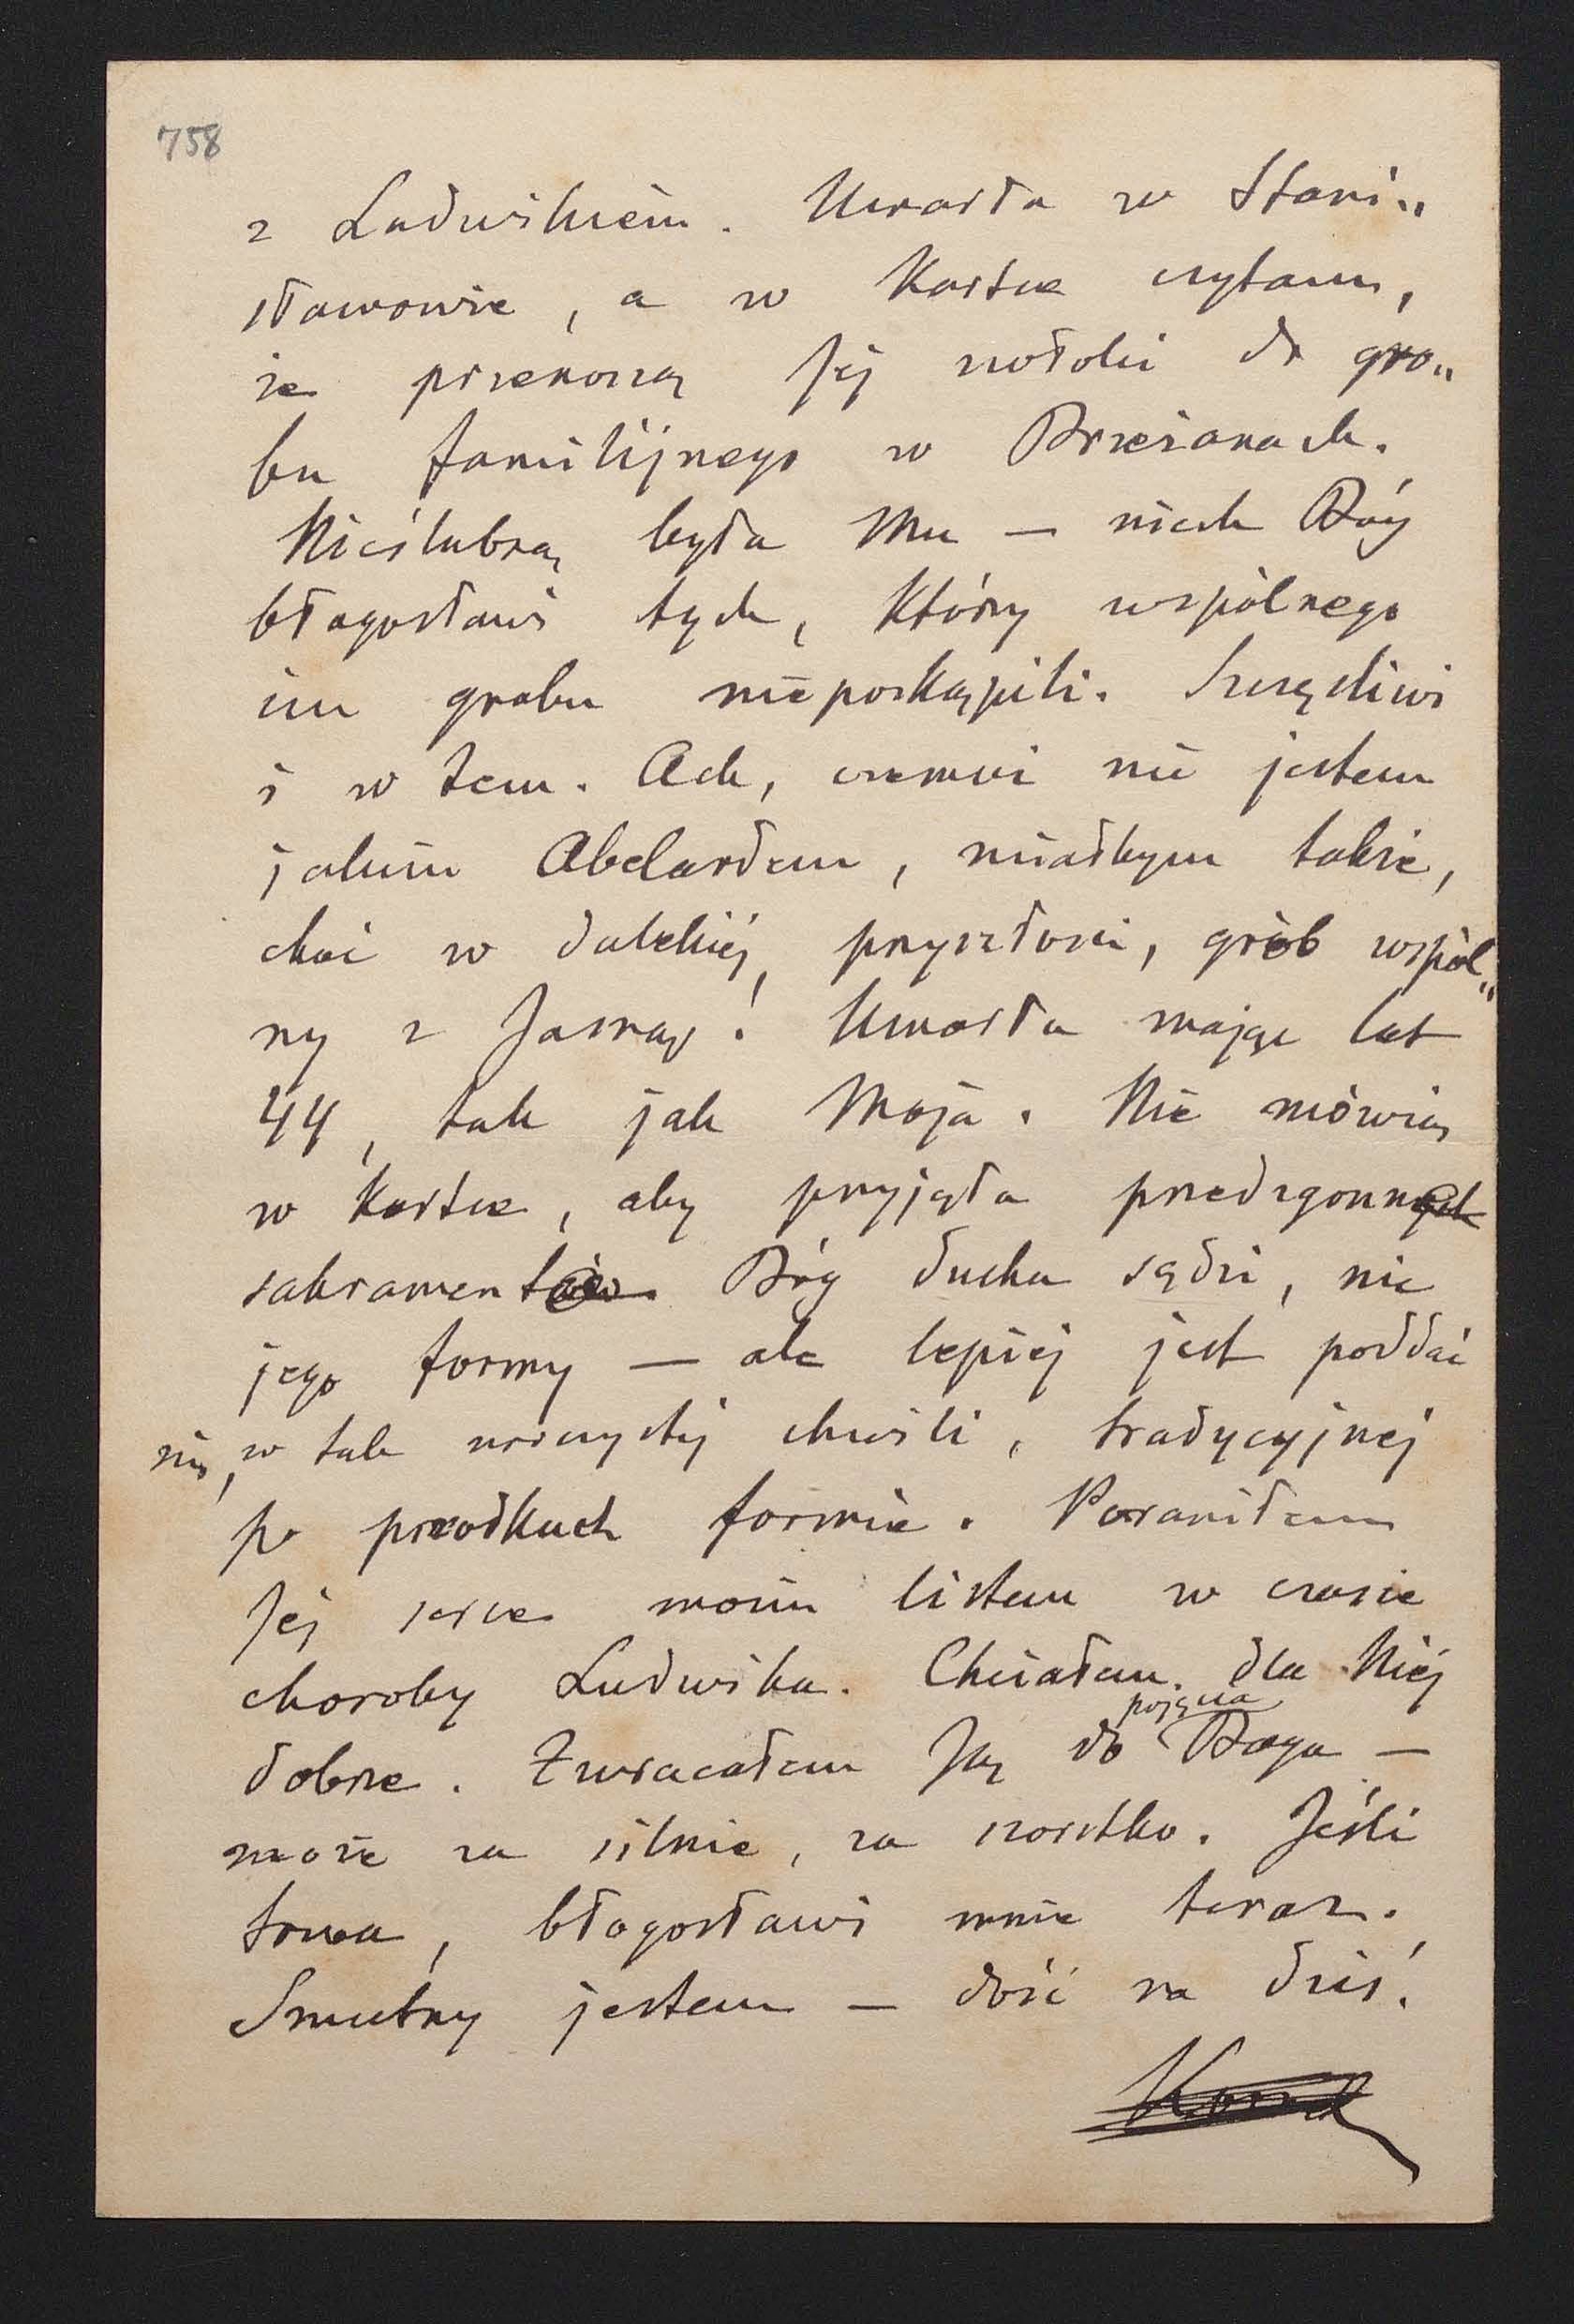 758
z Ludwikiem. Umarła w Stani„
sławowie, a w Kartce czytam,
że przenoszą Jéj zwłoki do gro„
bu familijnego w Brzeżanach.
Nieślubną była Mu — niech Bóg
błogosławi tych, którzy wspólnego
im grobu nie poskąpili. Szczęśliwi
i w tem. Ach, czemuż nie jestem
jakim Abelardem, miałbym także,
choć w dalekiéj, przyszłości, grób wspól„
ny z Jasną! Umarła mając lat
44, tak jak Moja. Nie mówią
w kartce, aby przyjęła przedzgonnych
sakramentów. Bóg ducha sądzi, nie
jego formy — ale lepiéj jest poddać
się, w tak uroczystéj chwili, tradycyjnéj
po przodkach formie. Poraniłem
Jéj serce moim listem w czasie
choroby Ludwika. Chciałem dla Niéj
pojęcia
dobrze. Zwracałem Ją do Boga —
może za silnie, za szorstko. Jeśli
trwa, błogosławi mnie teraz.
Smutny jestem — dość na dziś.
Kornel